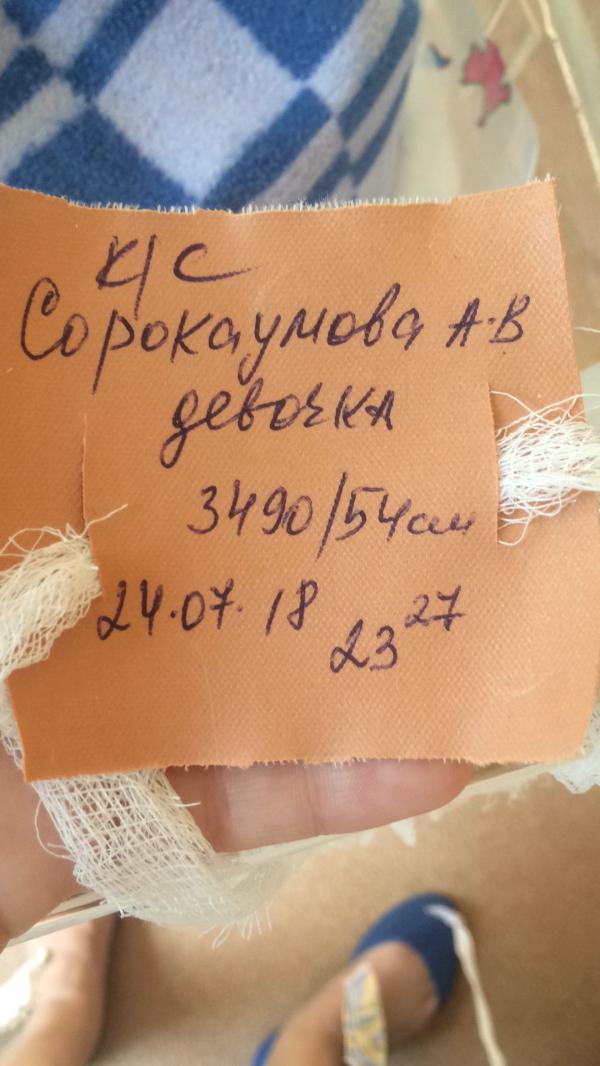 К/С
Сорокаумова А.В
девочка
3490/54см
24.07.18
23 27